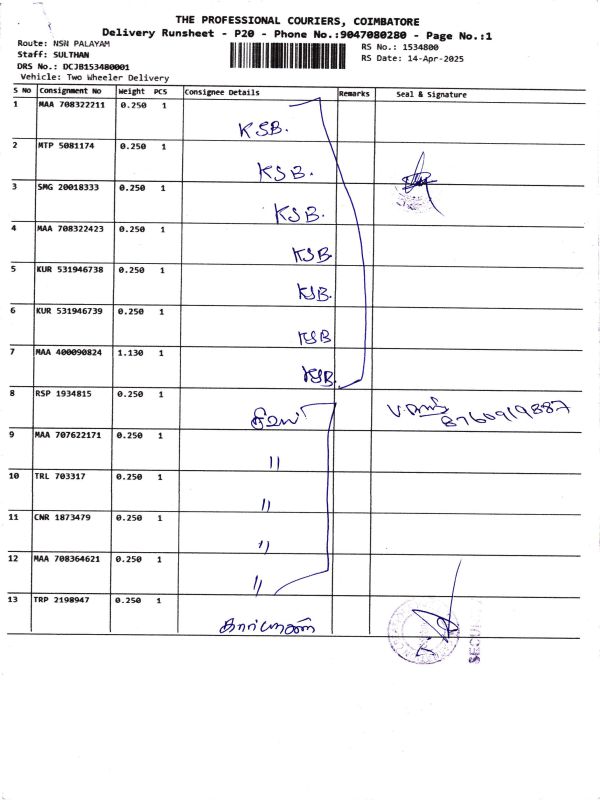 THE PROFESSIONAL COURIERS, COIMBATORE
Delivery Runsheet - P20 - Phone No.:9047080280 - Page No.:1
Route: NSN PALAYAM
RS No.: 1534800
Staff: SULTHAN
RS Date: 14-Apr-2025
DRS No.: DCJB153480001
Vehicle: Two Wheeler Delivery
S No Consignment No Weight PCS Consignee Details Remarks Seal & Signature
1 MAA 708322211 0.250 1 KSB.
2 MTP 5081174 0.250 1 KSB.
3 SMG 20018333 0.250 1 KSB.
4 MAA 708322423 0.250 1 KSB
5 KUR 531946738 0.250 1 KSB.
6 KUR 531946739 0.250 1 KSB
7 MAA 400090824 1.130 1 KSB
8 RSP 1934815 0.250 1 8760919887
9 MAA 707622171 0.250 1 "
10 TRL 703317 0.250 1 "
11 CNR 1873479 0.250 1 "
12 MAA 708364621 0.250 1 "
13 TRP 2198947 0.250 1